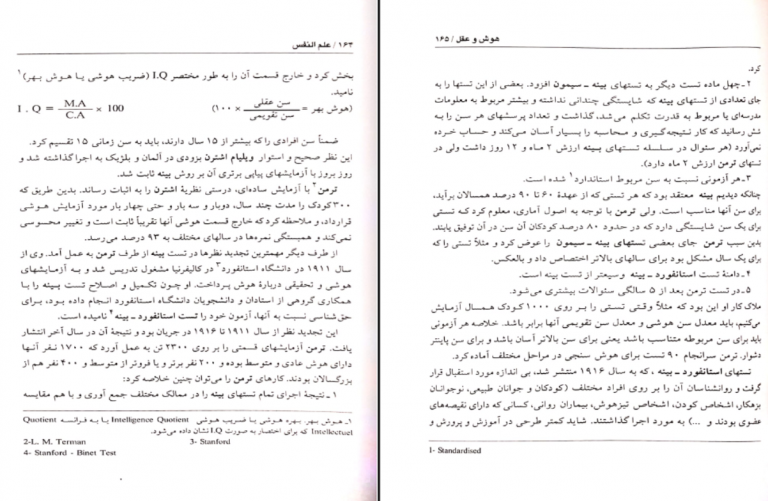 ۱۶۴/ علم النفس
بخش کرد و خارج قسمت آن را به طور مختصر I.Q (ضریب هوشی یا هوش بهر)۱
نامید.
I . Q = M.A / C.A × 100 (هوش بهر = سن عقلی / سن تقویمی × ۱۰۰)
ضمناً سن افرادی را که بیشتر از ۱۵ سال دارند، باید به سن زمانی ۱۵ تقسیم کرد.
این نظر صحیح و استوار ویلیام اشترن بزودی در آلمان و بلژیک به اجرا گذاشته شد و
روز بروز با آزمایشهای پیاپی برتری آن بر روش بینه ثابت شد.
ترمن۲ با آزمایش ساده‌ای، درستی نظریهٔ اشترن را به اثبات رساند. بدین طریق که
۳۰۰ کودک را مدت چند سال، دوبار و سه بار و حتی چهار بار مورد آزمایش هوشی
قرارداد، و ملاحظه کرد که خارج قسمت هوشی آنها تقریباً ثابت است و تغییر محسوسی
نمی‌کند و همبستگی نمره‌ها در سالهای مختلف به ۹۳ درصد می‌رسد.
از طرف دیگر مهمترین تجدید نظرها در تست بینه از طرف ترمن به عمل آمد. وی از
سال ۱۹۱۱ در دانشگاه استانفورد۳ در کالیفرنیا مشغول تدریس شد و به آزمایشهای
هوشی و تحقیقی دربارهٔ هوش پرداخت. او چون تکمیل و اصلاح تست بینه را با
همکاری گروهی از استادان و دانشجویان دانشگاه استانفورد انجام داده بود، برای
حق‌شناسی نسبت به آنها، آزمون خود را تست استانفورد ـ بینه۴ نامیده است.
این تجدید نظر از سال ۱۹۱۱ تا ۱۹۱۶ در جریان بود و نتیجهٔ آن در سال آخر انتشار
یافت. ترمن آزمایشهای قسمتی را بر روی ۲۳۰۰ تن به عمل آورد که ۱۷۰۰ نفر آنها
دارای هوش عادی و متوسط بوده و ۲۰۰ نفر برتر یا فروتر از متوسط و ۴۰۰ نفر هم از
بزرگسالان بودند. کارهای ترمن را می‌توان چنین خلاصه کرد:
۱ـ نتیجهٔ اجرای تمام تستهای بینه را در ممالک مختلف جمع آوری و با هم مقایسه
۱ـ هوش بهر، بهره هوشی یا ضریب هوشی Intelligence Quotient یا به فرانسه Quotient
Intellectuel که برای اختصار به صورت I.Q نشان داده می‌شود.
2-L. M. Terman 3- Stanford
4- Stanford - Binet Test
هوش و عقل / ۱۶۵
کرد.
۲ـ چهل ماده تست دیگر به تستهای بینه ـ سیمون افزود. بعضی از این تستها را به
جای تعدادی از تستهای بینه که شایستگی چندانی نداشته و بیشتر مربوط به معلومات
مدرسه‌ای یا مربوط به قدرت تکلم می‌شد، گذاشت و تعداد پرسشهای هر سن را به
شش رسانید که کار نتیجه‌گیری و محاسبه را بسیار آسان می‌کند و حساب خرده
نمی‌آورد (هر سئوال در سلسله تستهای بینه ارزش ۲ ماه و ۱۲ روز داشت ولی در
تستهای ترمن ارزش ۲ ماه دارد).
۳ـ هر آزمونی نسبت به سن مربوط استاندارد۱ شده است.
چنانکه دیدیم بینه معتقد بود که هر تستی که از عهدهٔ ۶۰ تا ۹۰ درصد همسالان برآید،
برای سن آنها مناسب است. ولی ترمن با توجه به اصول آماری، معلوم کرد که تستی
برای یک سن شایستگی دارد که در حدود ۸۰ درصد کودکان آن سن در آن توفیق یابند.
بدین سبب ترمن جای بعضی تستهای بینه ـ سیمون را عوض کرد و مثلاً تستی را که
برای یک سال مشکل بود برای سالهای بالاتر اختصاص داد و بالعکس.
۴ـ دامنهٔ تست استانفورد ـ بینه وسیعتر از تست بینه است.
۵ـ در تست ترمن بعد از ۵ سالگی سئوالات بیشتری می‌شود.
ملاک کار او این بود که مثلاً وقتی تستی را بر روی ۱۰۰۰ کودک همسال آزمایش
می‌کنیم، باید معدل سن هوشی و معدل سن تقویمی آنها برابر باشد. خلاصه هر آزمونی
باید برای سن مربوطه متناسب باشد یعنی برای سن بالاتر آسان باشد و برای سن پایینتر
دشوار. ترمن سرانجام ۹۰ تست برای هوش سنجی در مراحل مختلف آماده کرد.
تستهای استانفورد ـ بینه، که به سال ۱۹۱۶ منتشر شد، بی اندازه مورد استقبال قرار
گرفت و روانشناسان آن را بر روی افراد مختلف (کودکان و جوانان طبیعی، نوجوانان
بزهکار، اشخاص کودن، اشخاص تیزهوش، بیماران روانی، کسانی که دارای نقیصه‌های
عضوی بودند و ...) به مورد اجرا گذاشتند. شاید کمتر طرحی در آموزش و پرورش و
1- Standardised